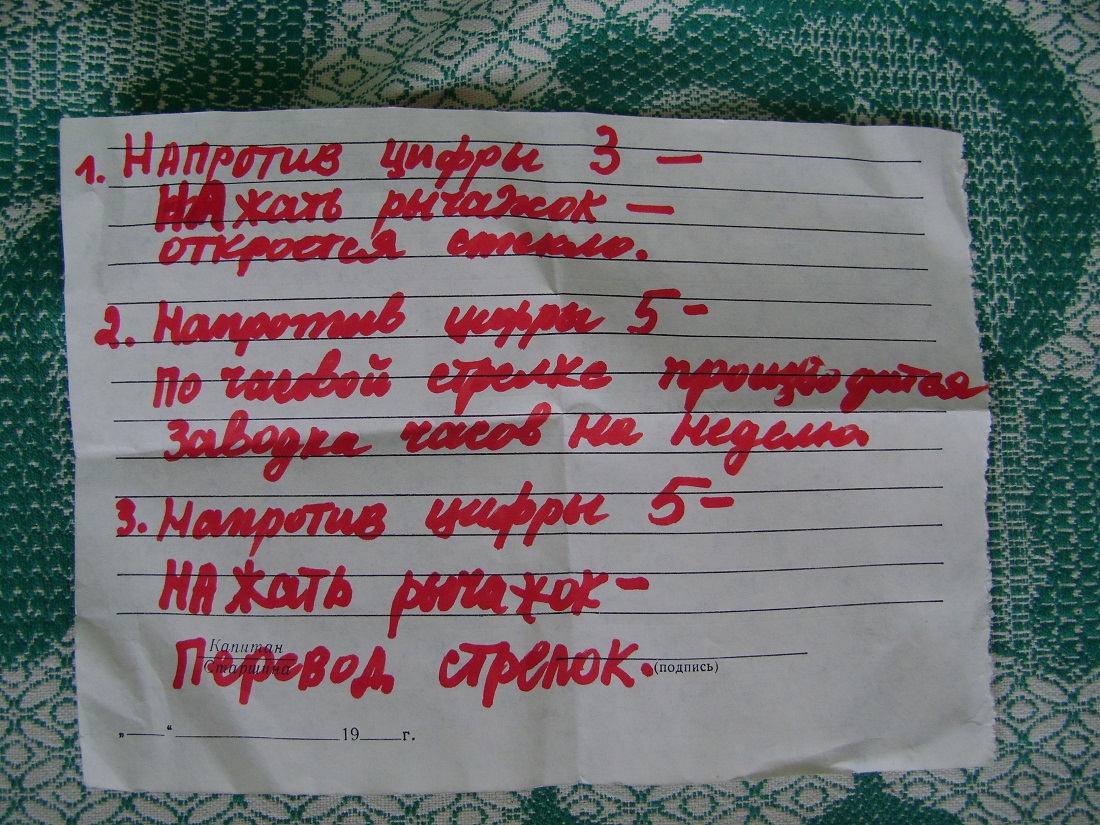 1. Напротив цифры 3 —
нажать рычажок —
откроется стекло.
2. Напротив цифры 5 —
по часовой стрелке производится
Заводка часов на неделю.
3. Напротив цифры 5 —
нажать рычажок —
Капитан
Перевод стрелок.
Старшина (подпись)
„ — “ 19 г.